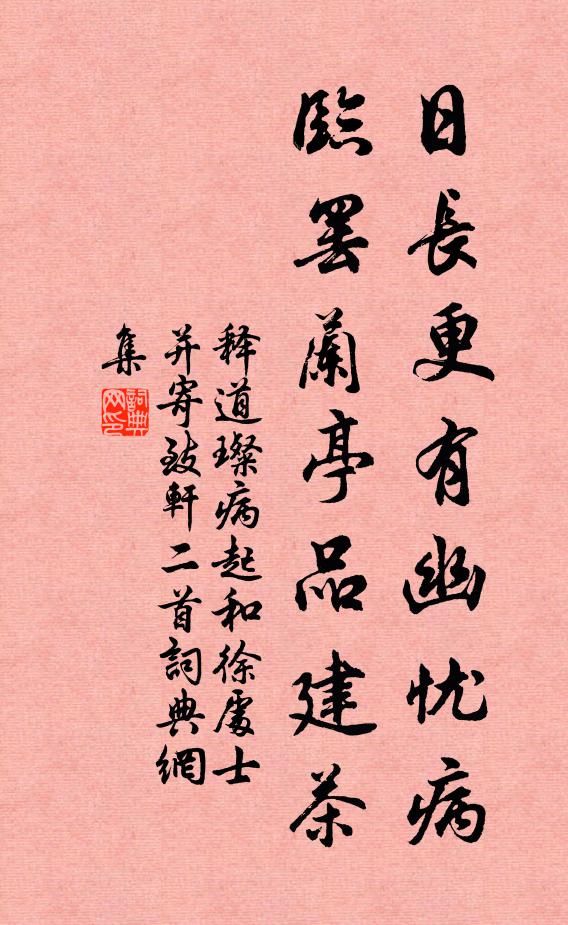 日長更有幽忧病
臨罢蘭亭品建茶
释道璨病起和徐處士
并寄致軒二首詞典網
集
詞典
网印